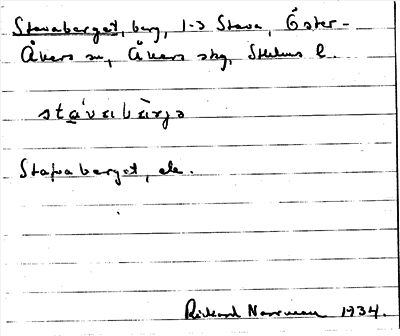 Stavaberget, berg, 1-3 Stava, Öster-
Åkers sn, Åkers skg, Sthlms l.
stávabàrjə
Stafvaberget, ek.
Rickard Norrman 1934.